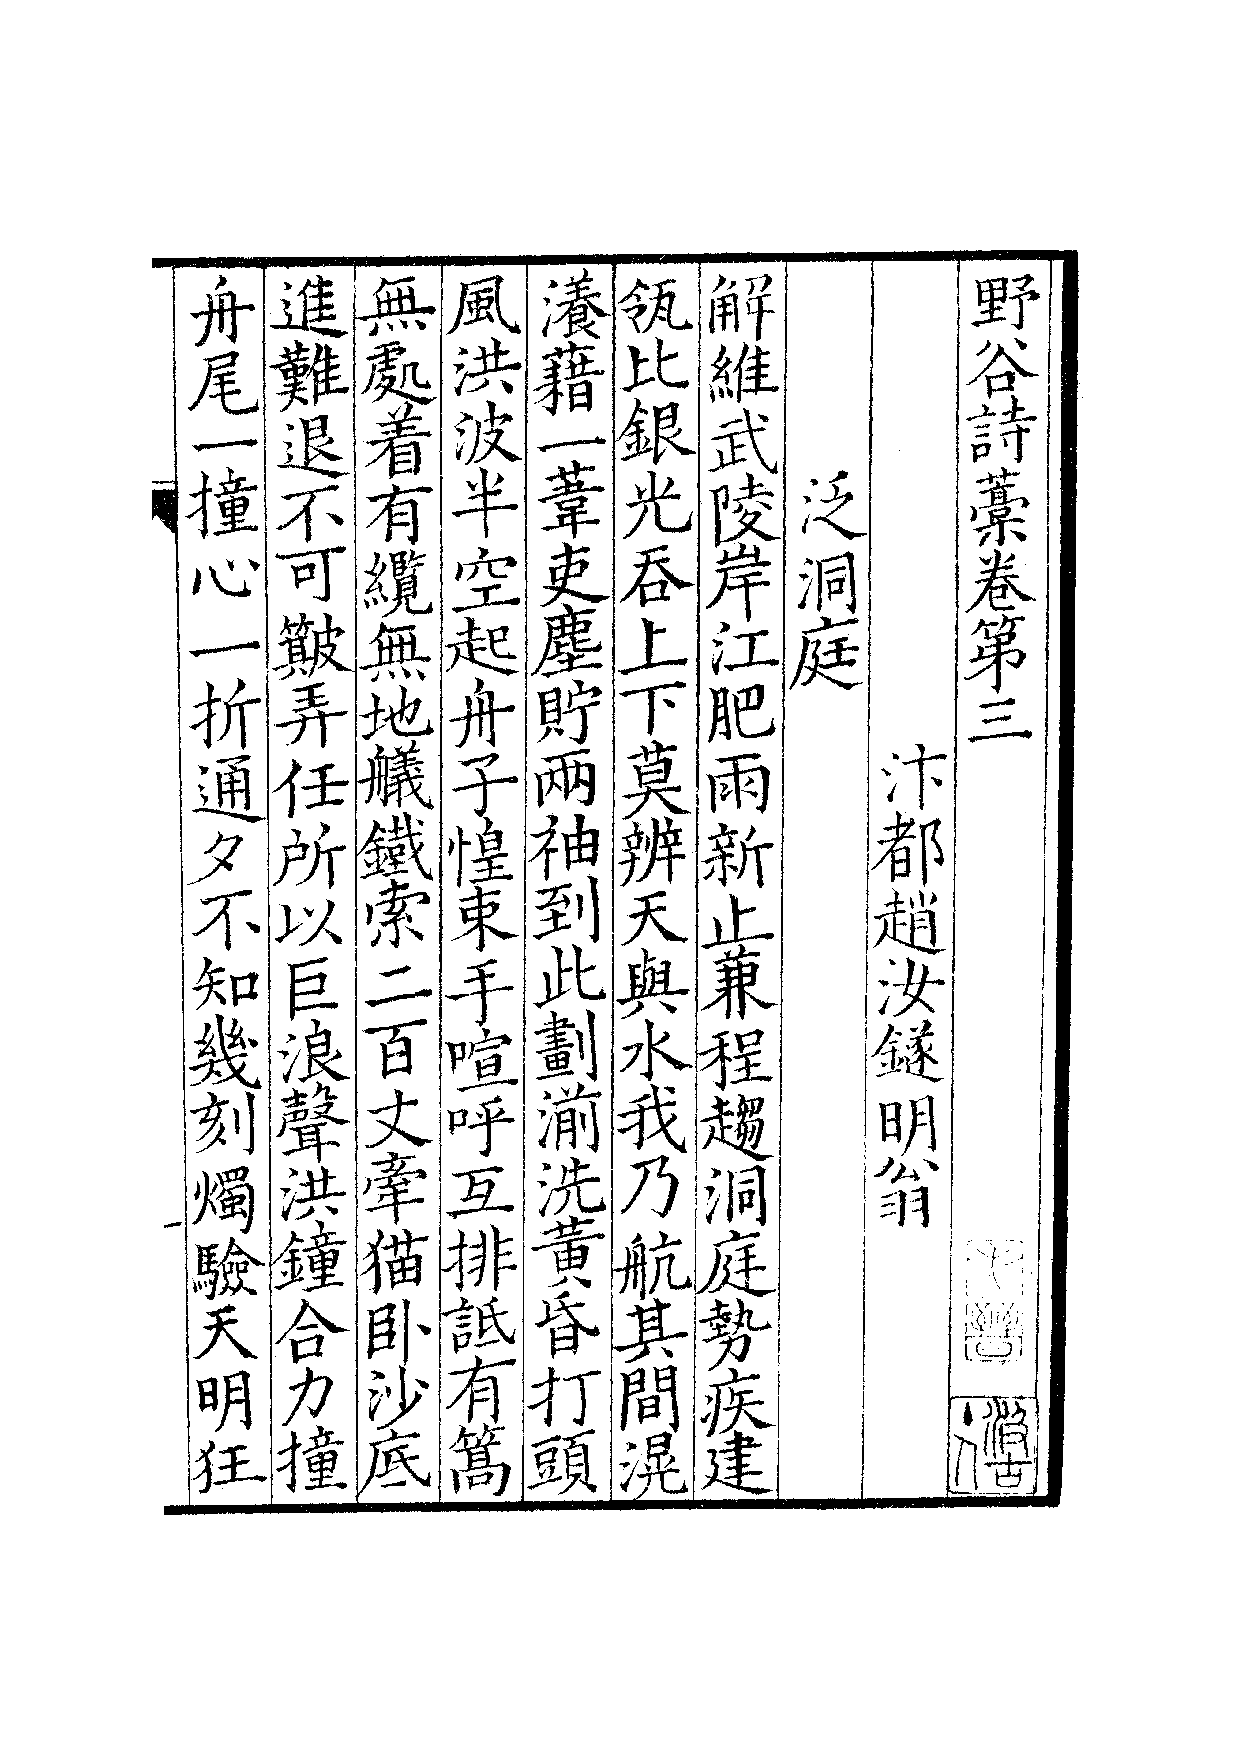 野谷詩藁卷第三
汴都趙汝鐩明翁
泛洞庭
解維武陵岸江肥雨新止兼程趨洞庭勢疾建
瓴比銀光吞上下莫辨天與水我乃航其間滉
瀁藉一葦吏塵貯兩袖到此劃湔洗黃昏打頭
風洪波半空起舟子惶束手喧呼互排詆有篙
無處着有纜無地艤鐵索二百丈牽猫卧沙底
進難退不可簸弄任所以巨浪聲洪鐘合力撞
舟尾一撞心一折通夕不知幾刻燭驗天明狂